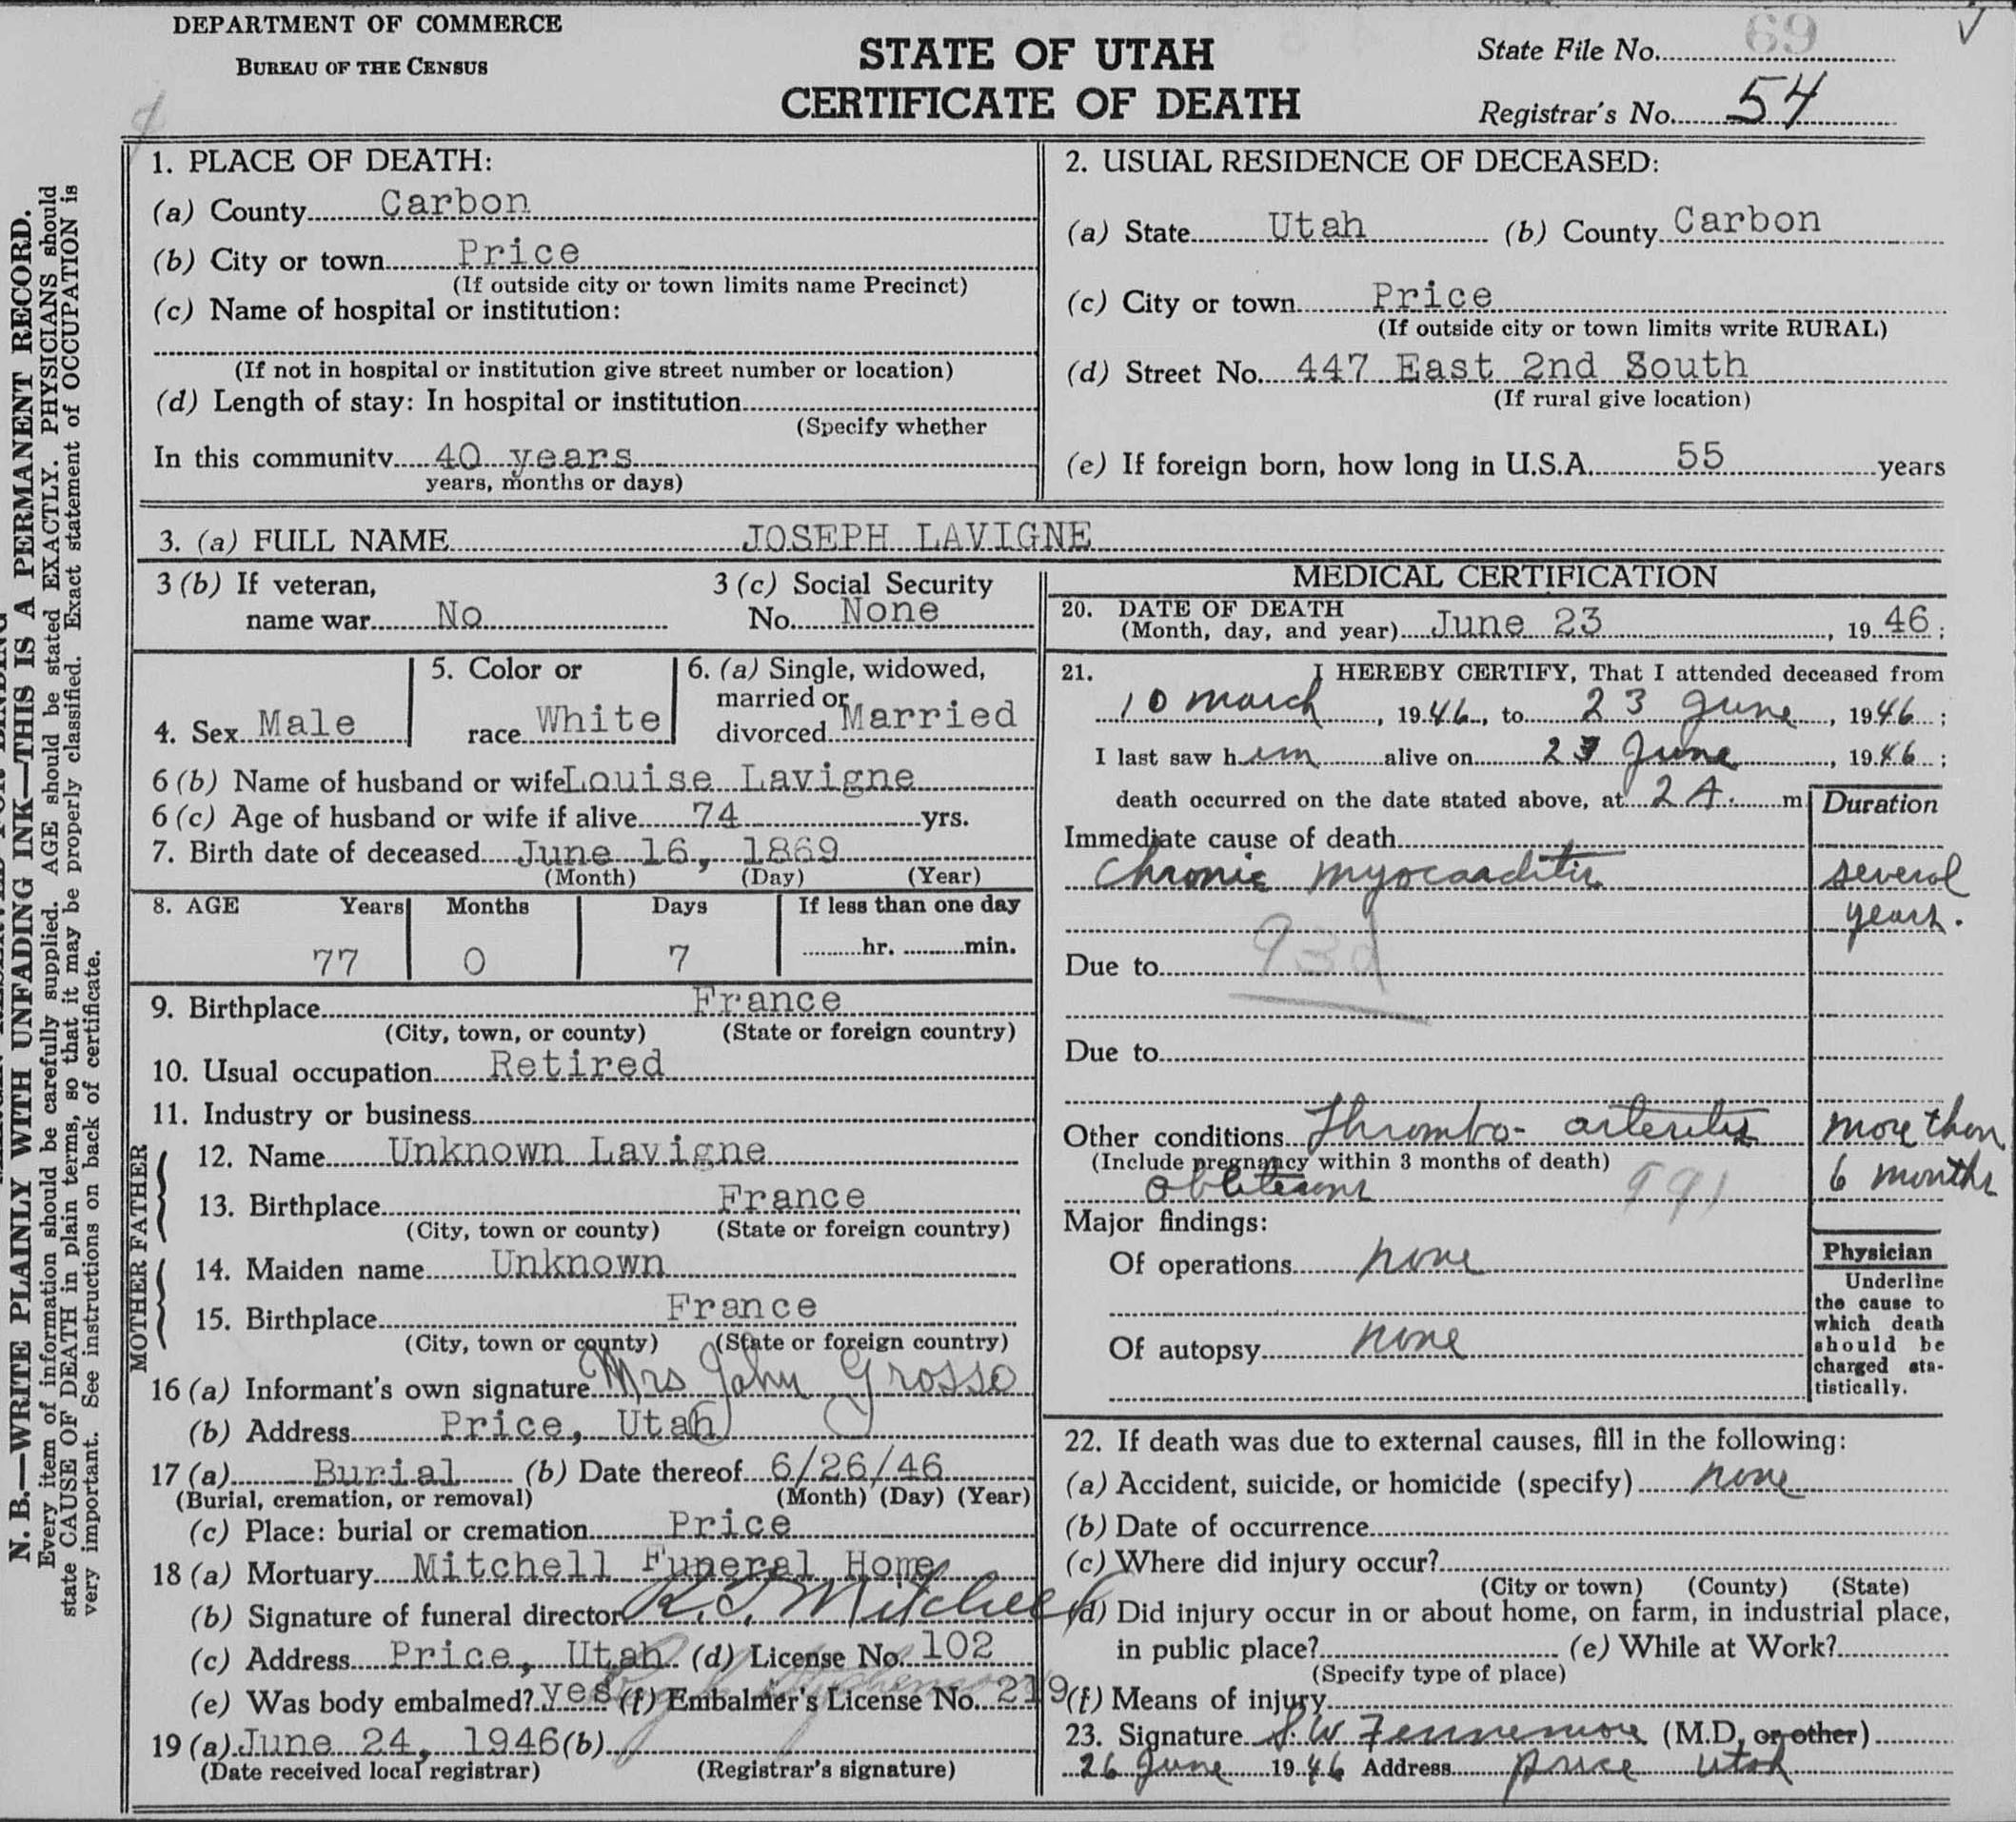 DEPARTMENT OF COMMERCE
BUREAU OF THE CENSUS
STATE OF UTAH
CERTIFICATE OF DEATH
State File No. 69
Registrar's No. 54
N. B.—WRITE PLAINLY WITH UNFADING INK—THIS IS A PERMANENT RECORD.
Every item of information should be carefully supplied. AGE should be stated EXACTLY. PHYSICIANS should
state CAUSE OF DEATH in plain terms, so that it may be properly classified. Exact statement of OCCUPATION is
very important. See instructions on back of certificate.
1. PLACE OF DEATH:
(a) County Carbon
(b) City or town Price
(If outside city or town limits name Precinct)
(c) Name of hospital or institution:
(If not in hospital or institution give street number or location)
(d) Length of stay: In hospital or institution
(Specify whether
In this community 40 years
years, months or days)
2. USUAL RESIDENCE OF DECEASED:
(a) State Utah (b) County Carbon
(c) City or town Price
(If outside city or town limits write RURAL)
(d) Street No. 447 East 2nd South
(If rural give location)
(e) If foreign born, how long in U.S.A. 55 years
3. (a) FULL NAME JOSEPH LAVIGNE
3 (b) If veteran,
name war No
3 (c) Social Security
No. None
4. Sex Male
5. Color or
race White
6. (a) Single, widowed,
married or
divorced Married
6 (b) Name of husband or wife Louise Lavigne
6 (c) Age of husband or wife if alive 74 yrs.
7. Birth date of deceased June 16, 1869
(Month) (Day) (Year)
8. AGE Years Months Days If less than one day
77 0 7 hr. min.
9. Birthplace France
(City, town, or county) (State or foreign country)
10. Usual occupation Retired
11. Industry or business
FATHER
12. Name Unknown Lavigne
13. Birthplace France
(City, town or county) (State or foreign country)
MOTHER
14. Maiden name Unknown
15. Birthplace France
(City, town or county) (State or foreign country)
16 (a) Informant's own signature Mrs John Grosso
(b) Address Price, Utah
17 (a) Burial (b) Date thereof 6/26/46
(Burial, cremation, or removal) (Month) (Day) (Year)
(c) Place: burial or cremation Price
18 (a) Mortuary Mitchell Funeral Home
(b) Signature of funeral director Mitchell
(c) Address Price, Utah (d) License No. 102
(e) Was body embalmed? yes (f) Embalmer's License No. 219
19 (a) June 24, 1946 (b)
(Date received local registrar) (Registrar's signature)
MEDICAL CERTIFICATION
20. DATE OF DEATH
(Month, day, and year) June 23, 1946;
21. I HEREBY CERTIFY, That I attended deceased from
10 march, 1946, to 23 June, 1946;
I last saw him alive on 23 June, 1946;
death occurred on the date stated above, at 2 A. m
Duration
Immediate cause of death
Chronic myocarditis several
years.
93d
Due to
Due to
Other conditions Thrombo-arteritis more than
(Include pregnancy within 3 months of death)
obliterans 991 6 months
Major findings:
Of operations none
Of autopsy none
Physician
Underline
the cause to
which death
should be
charged sta-
tistically.
22. If death was due to external causes, fill in the following:
(a) Accident, suicide, or homicide (specify) none
(b) Date of occurrence
(c) Where did injury occur?
(City or town) (County) (State)
(d) Did injury occur in or about home, on farm, in industrial place,
in public place? (e) While at Work?
(Specify type of place)
(f) Means of injury
23. Signature S. W. Fennemore (M.D. or other)
26 June 1946 Address Price Utah